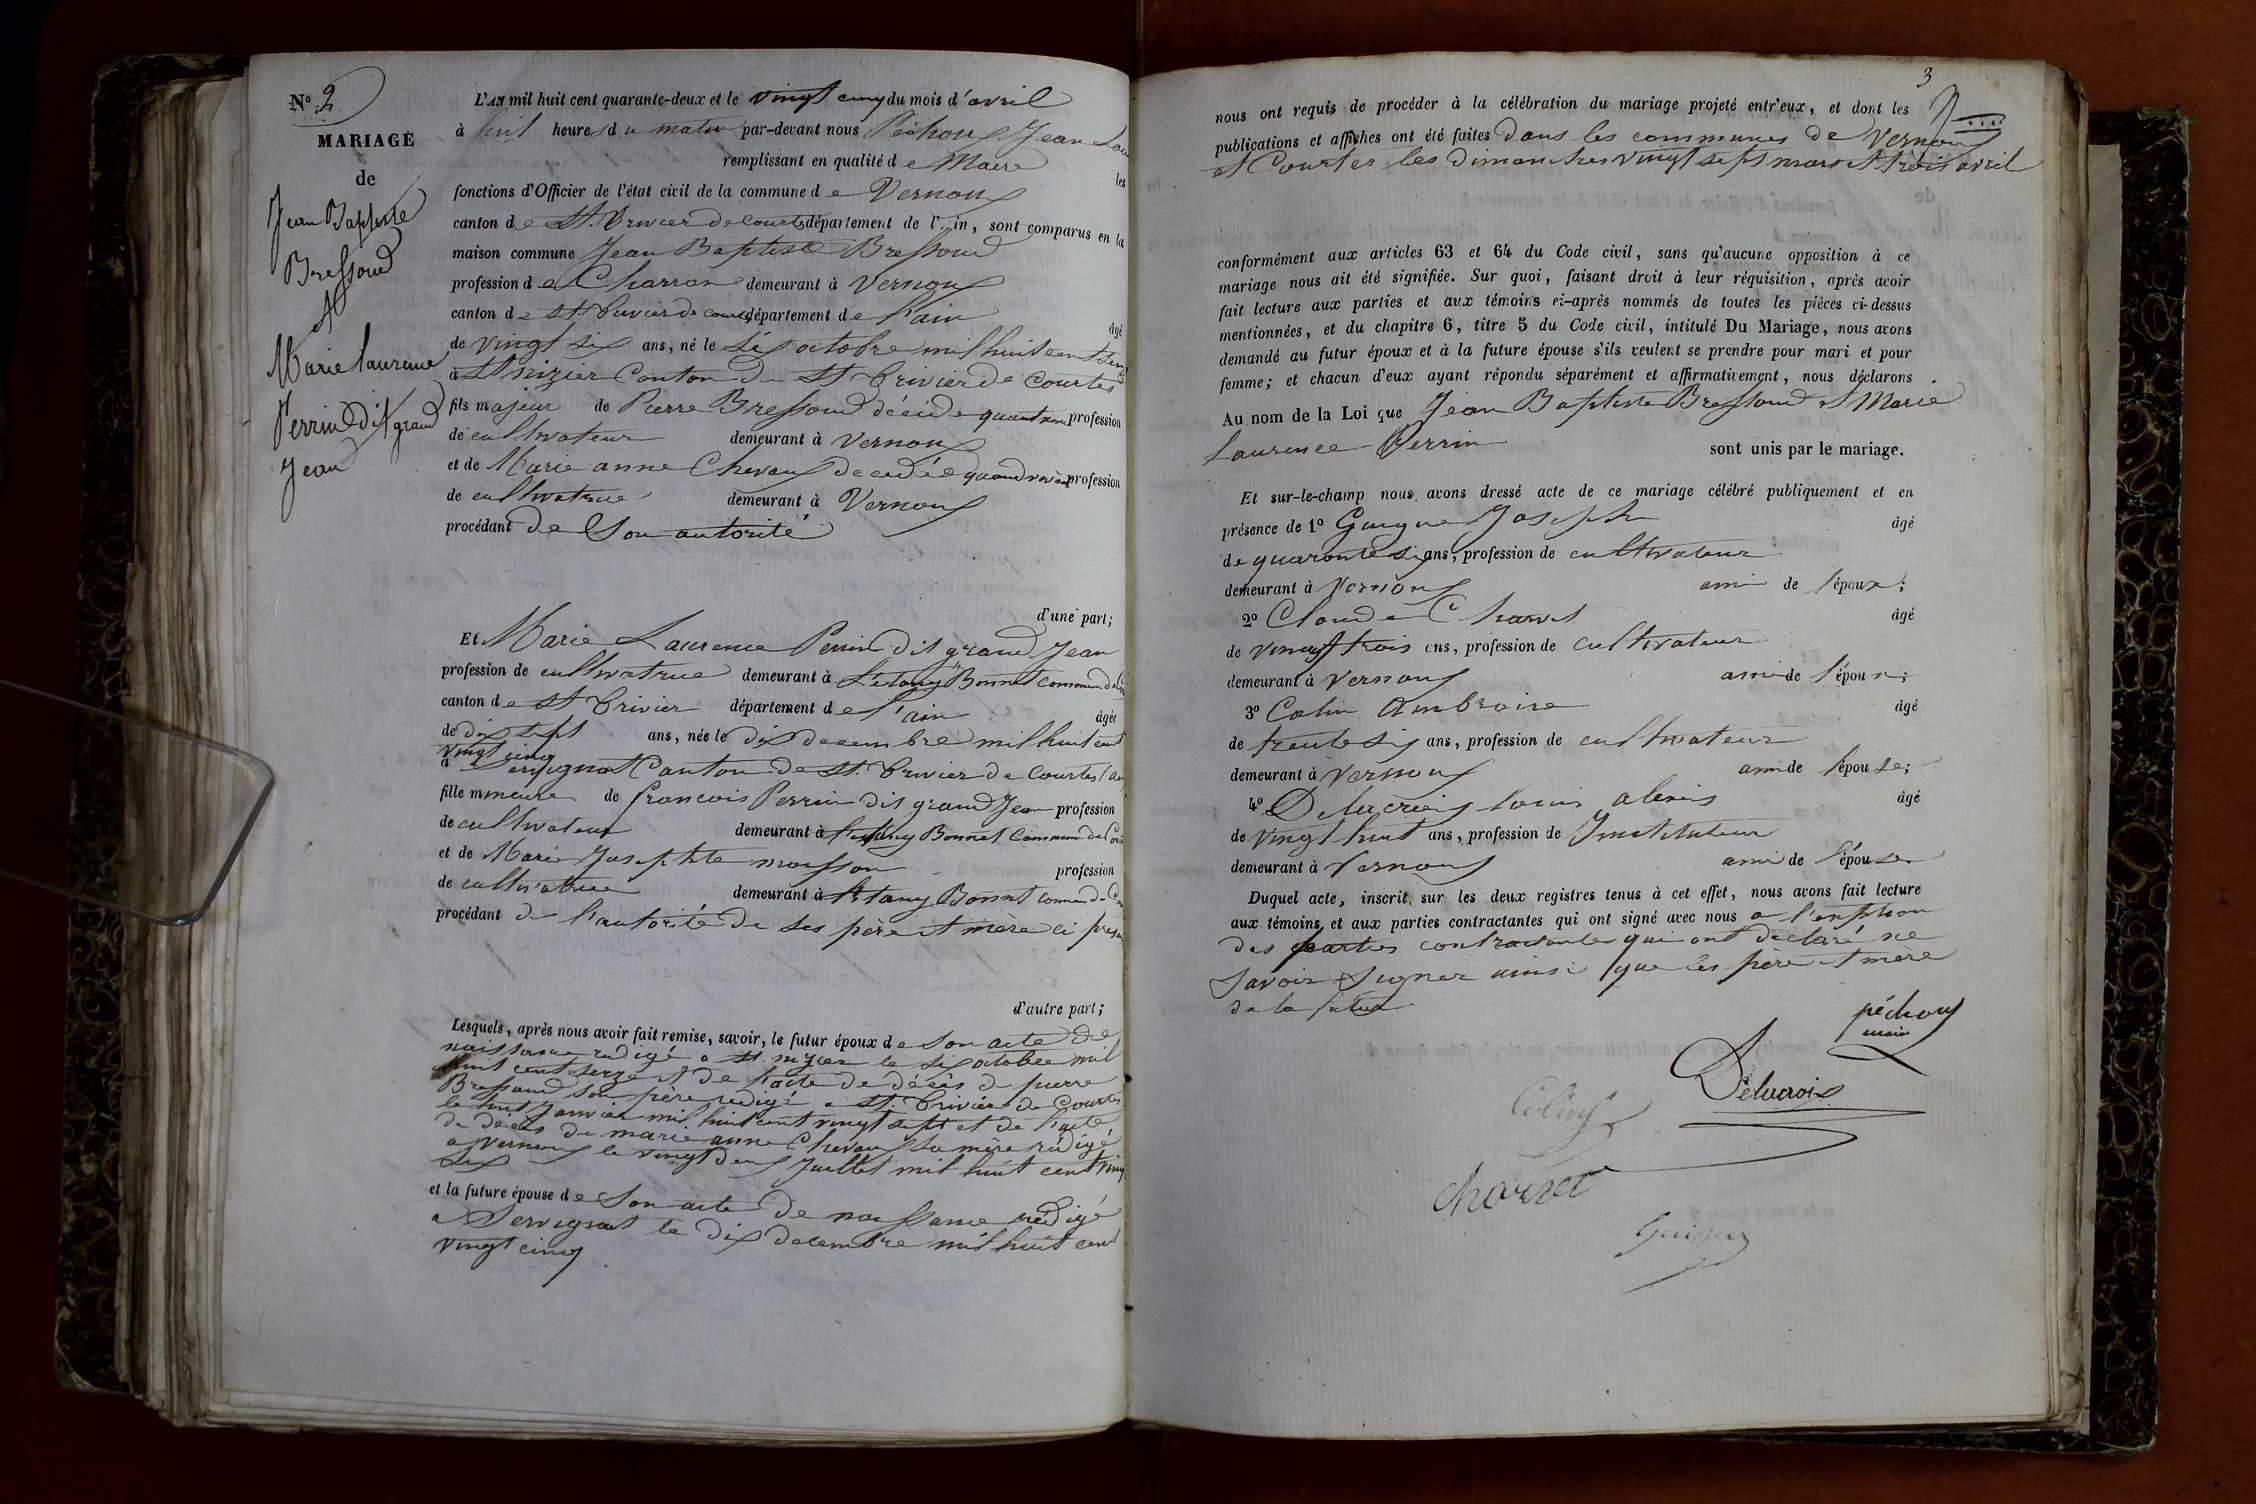 N° 2
MARIAGE
de
Jean Baptiste
Bressoud
et
Marie laurence
Perrin dit grand
Jean
L'AN mil huit cent quarante-deux et le vingt cinq du mois d'avril
à huit heures du matin par-devant nous Péchoux Jean
remplissant en qualité de Maire les
fonctions d'Officier de l'état civil de la commune de Vernoux
canton de St. Trivier de courtes département de l'Ain, sont comparus en la
maison commune Jean Baptiste Bressoud
profession de Charron demeurant à Vernoux
canton de St. Trivier de courtes département de l'ain âgé
de vingt six ans, né le six octobre mil huit cent
à St nizier Canton de St Trivier de Courtes
fils majeur de Pierre Bressoud décédé quand vivant profession
de cultivateur demeurant à Vernoux
et de Marie anne Chevaux decedée quand vivant profession
de cultivatrice demeurant à Vernoux
procédant de Son autorité
d'une part;
Et Marie Laurence Perrin dit grand Jean
profession de cultivatrice demeurant à L'étang Bonnet commune de
canton de St Trivier département de l'ain âgée
de dix sept ans, née le dix decembre mil huit cent
vingt cinq
à Servignat Canton de St. Trivier de Courtes
fille mineure de francois Perrin dit grand Jean profession
de cultivateur demeurant à l'etang Bonnet Commune de
et de Marie Josephte moisson profession
de cultivatrice demeurant à l'etang Bonnet commune de
procédant de l'autorité de ses père et mère ci
d'autre part;
Lesquels, après nous avoir fait remise, savoir, le futur époux de son acte de
naissance redigé a St. nizier le six octobre mil
huit cent seize et de l'acte de décès de pierre
Bressoud son père redigé a St. Trivier de Courtes
le huit Janvier mil huit cent vingt sept et de l'acte
de décès de marie anne Chevaux sa mère rédigé
a Vernoux le vingt deux Juillet mil huit cent vingt
six
et la future épouse de Son acte de naissance rédigé
a Servignat le dix decembre mil huit cent
vingt cinq
3
nous ont requis de procéder à la célébration du mariage projeté entr'eux, et dont les
publications et affiches ont été faites dans les communes de Vernoux
et Courtes les dimanches vingt sept mars et trois avril
conformément aux articles 63 et 64 du Code civil, sans qu'aucune opposition à ce
mariage nous ait été signifiée. Sur quoi, faisant droit à leur réquisition, après avoir
fait lecture aux parties et aux témoins ci-après nommés de toutes les pièces ci-dessus
mentionnées, et du chapitre 6, titre 5 du Code civil, intitulé Du Mariage, nous avons
demandé au futur époux et à la future épouse s'ils veulent se prendre pour mari et pour
femme; et chacun d'eux ayant répondu séparément et affirmativement, nous déclarons
Au nom de la Loi que Jean Baptiste Bressoud et Marie
Laurence Perrin sont unis par le mariage.
Et sur-le-champ nous avons dressé acte de ce mariage célébré publiquement et en
présence de 1° Guigue Joseph âgé
de quarante six ans, profession de cultivateur
demeurant à Vernoux ami de l'époux;
2° Claude Charvet âgé
de vingt trois ans, profession de cultivateur
demeurant à Vernoux ami de l'époux;
3° Colin Ambroise âgé
de trente six ans, profession de cultivateur
demeurant à Vernoux ami de l'épouse;
4° Delacroix louis alexis âgé
de vingt huit ans, profession de Instituteur
demeurant à Vernoux ami de l'épouse
Duquel acte, inscrit sur les deux registres tenus à cet effet, nous avons fait lecture
aux témoins et aux parties contractantes qui ont signé avec nous a l'exeption
des parties contractantes qui ont déclaré ne
savoir signer ainsi que les père et mère
de la future
péchoux
maire
Delacroix
Colin
charvet
Guigue